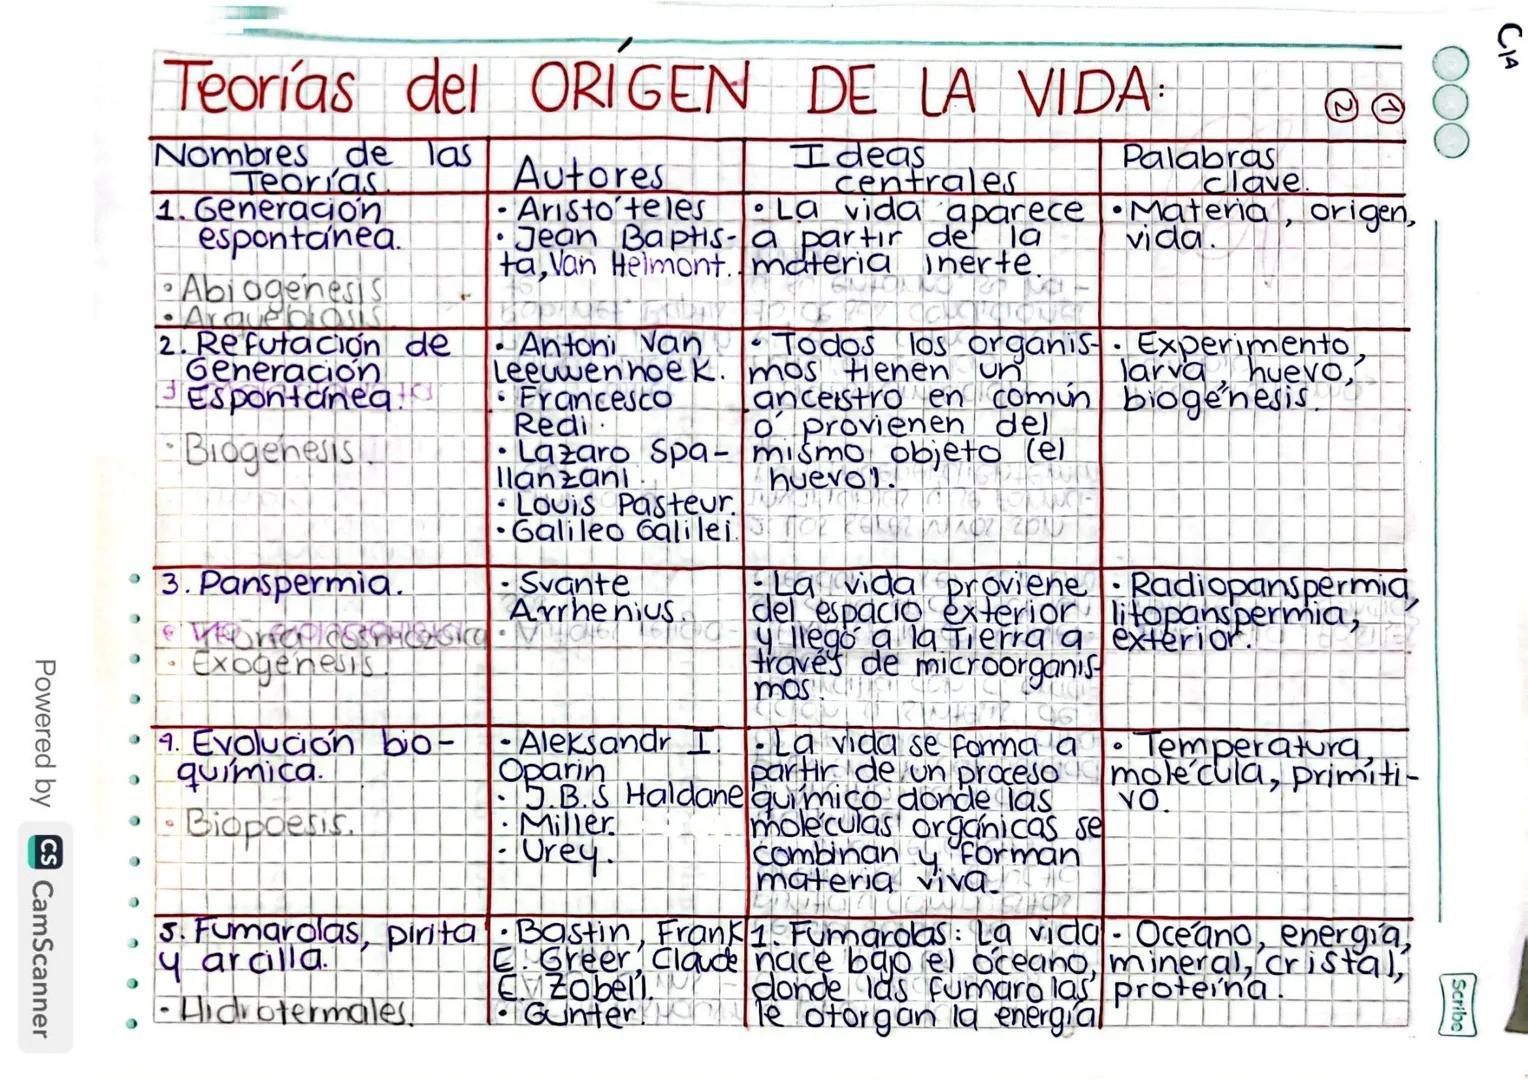 C1A
Teorías del ORÍGEN DE LA VIDA:
2 1
Nombres de las
Teorías.
Autores
Ideas
centrales
Palabras
clave.
1. Generación
espontánea.
• Abiogénesis
• Arquebiosis.
• Aristóteles
• Jean Baptis-
ta, Van Helmont.
• La vida aparece
a partir de la
materia inerte.
• Materia, origen,
vida.
2. Refutación de
Generación
Espontánea.
• Biogénesis.
• Antoni Van
Leeuwenhoek.
• Francesco
Redi.
• Lazaro Spa-
llanzani.
• Louis Pasteur.
• Galileo Galilei.
• Todos los organis-
mos tienen un
ancestro en común
ó provienen del
mismo objeto (el
huevo).
• Experimento,
larva, huevo,
biogénesis.
3. Panspermia.
• Exogénesis.
• Svante
Arrhenius.
• La vida proviene
del espacio exterior
y llegó a la Tierra a
través de microorganis-
mos.
• Radiopanspermia,
litopanspermia,
exterior.
4. Evolución bio-
química.
• Biopoesis.
• Aleksandr I.
Oparin
• J.B.S Haldane
• Miller.
• Urey.
• La vida se forma a
partir de un proceso
químico donde las
moléculas orgánicas se
combinan y forman
materia viva.
• Temperatura,
molécula, primiti-
vo.
5. Fumarolas, pirita
y arcilla.
• Hidrotermales.
• Bastin, Frank
E. Greer, Claude
E. Zobell.
• Gunter.
1. Fumarolas: La vida
nace bajo el océano,
donde las fumarolas
le otorgan la energía
• Océano, energía,
mineral, cristal,
proteína.
Scribe
Powered by CS CamScanner